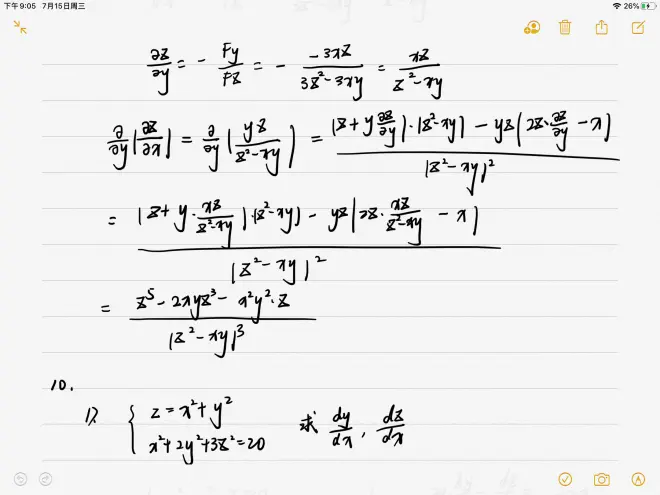 下午9:05 7月15日周三 26%
∂z/∂y = - Fy/Fz = - -3xz/(3z²-3xy) = xz/(z²-xy)
∂/∂y(∂z/∂x) = ∂/∂y(yz/(z²-xy)) = ((z+y∂z/∂y)·(z²-xy) - yz(2z·∂z/∂y - x))/(z²-xy)²
= ((z+y·xz/(z²-xy))·(z²-xy) - yz(2z·xz/(z²-xy) - x))/(z²-xy)²
= (z⁵-2xyz³-x²y²·z)/(z²-xy)³
10.
1). { z=x²+y²
x²+2y²+3z²=20 求 dy/dx, dz/dx